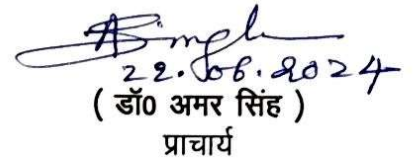 ASingh
22.06.2024
( डॉ0 अमर सिंह )
प्राचार्य